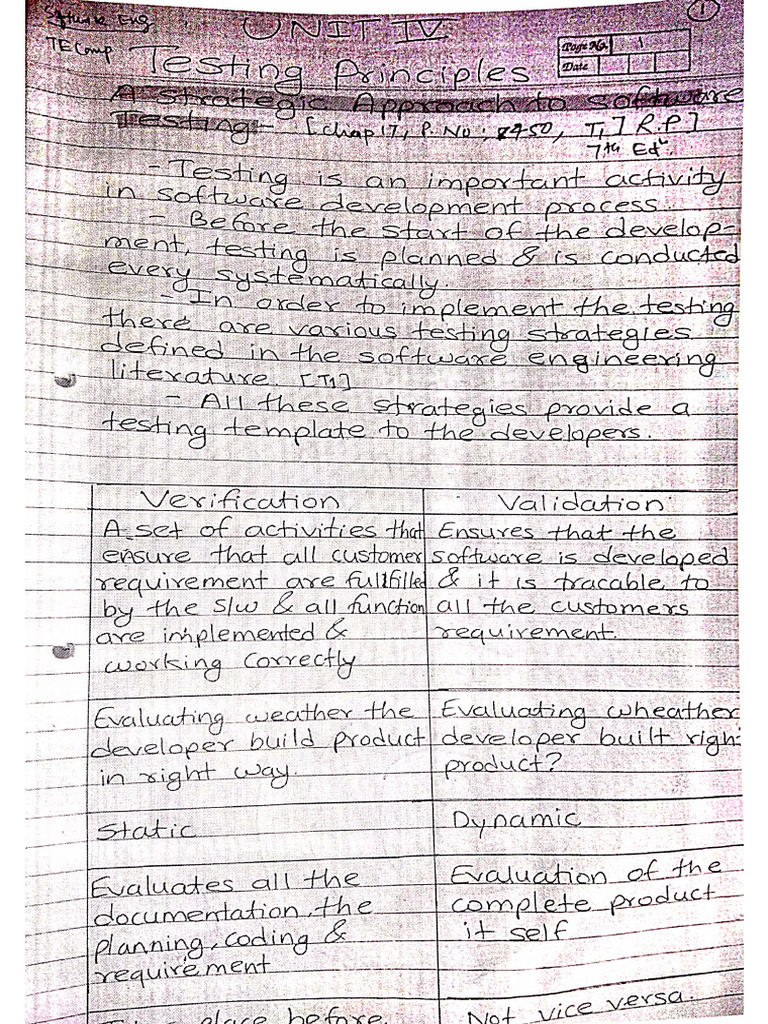 Software Eng
TE Comp
UNIT IV
①
Page No. 1
Date
Testing Principles
A Strategic Approach to Software
Testing:- [Chap 17, P. No: 450, T1] R.P]
7th Edn.
- Testing is an important activity
in software development process.
- Before the start of the develop-
ment, testing is planned & is conducted
every systematically.
- In order to implement the testing
there are various testing strategies
defined in the software engineering
literature. [T1]
- All these strategies provide a
testing template to the developers.
Verification
Validation
A set of activities that
ensure that all customer
requirement are fullfilled
by the S/w & all function
are implemented &
working Correctly
Ensures that the
software is developed
& it is tracable to
all the customers
requirement.
Evaluating weather the
developer build product
in right way.
Evaluating wheather
developer built righ
product?
Static
Dynamic
Evaluates all the
documentation, the
planning, coding &
requirement
Evaluation of the
complete product
it self
place before
Not vice versa.